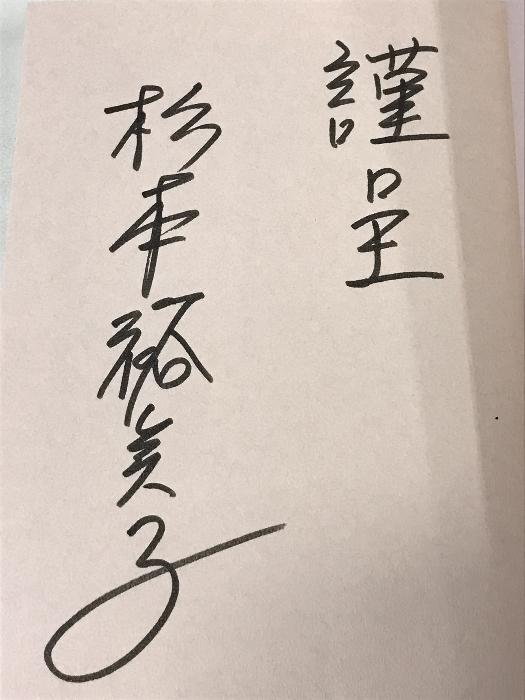 謹呈
杉本裕美子